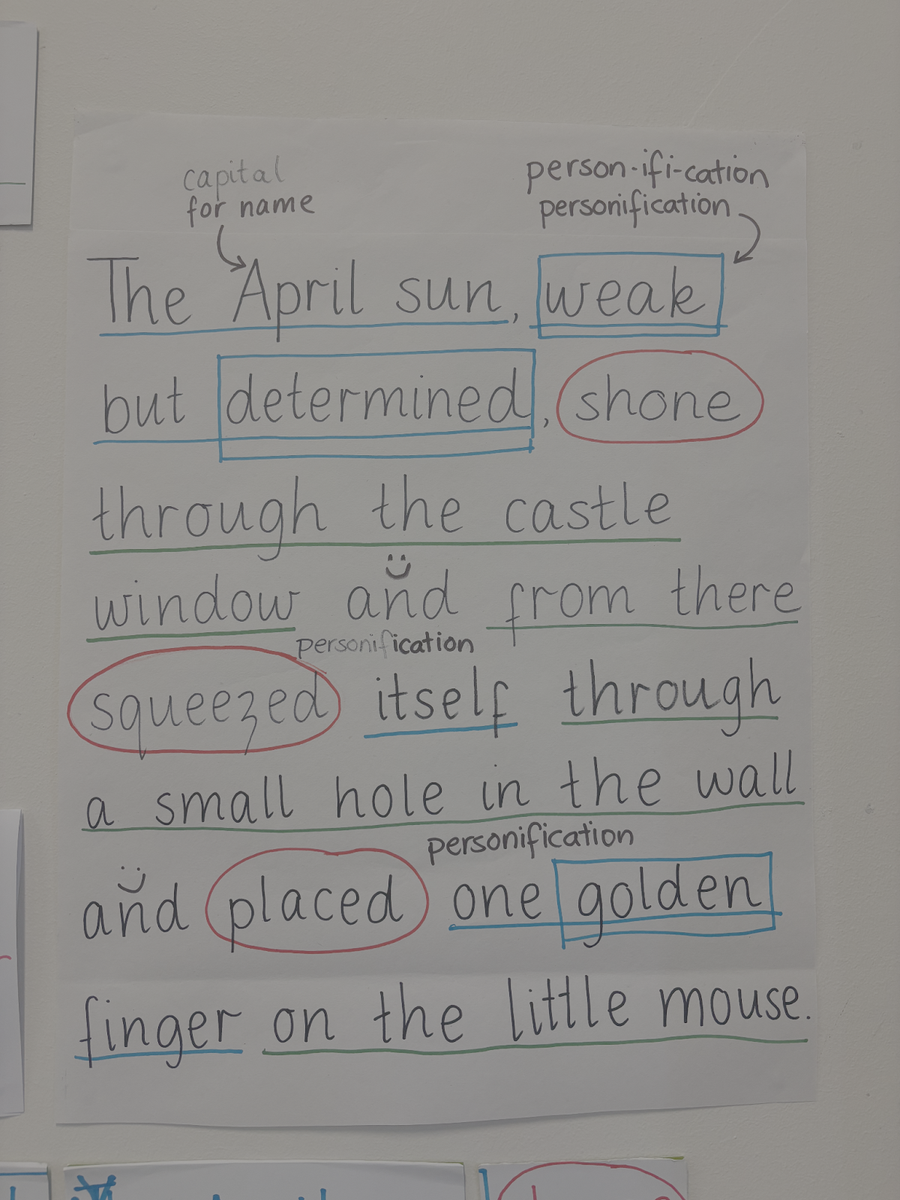 capital
for name
person-ifi-cation
personification
The April sun, weak
but determined, shone
through the castle
window and from there
personification
squeezed itself through
a small hole in the wall
personification
and placed one golden
finger on the little mouse.